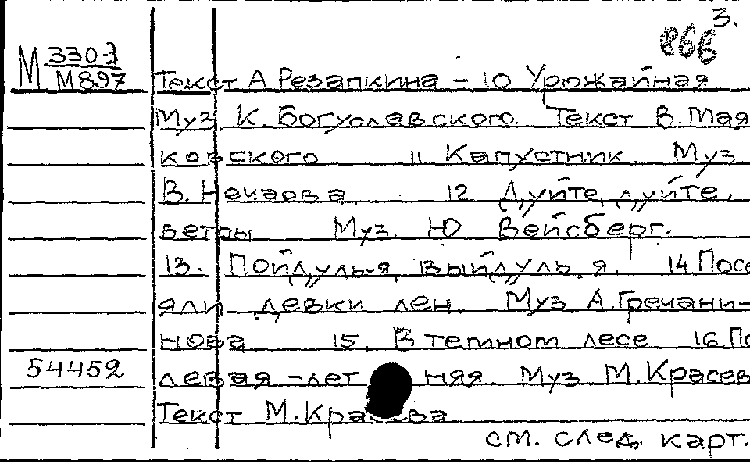 3.
866
М 330-3
М897
Текст А Резапкина - 10 Урожайная
Муз К. Богуславского Текст В. Мая
ковского 11 Капустник Муз
В. Нечаева 12 Дуйте, дуйте,
ветры Муз. Ю Вейсберг.
13. Пойду ль я, выйду ль я. 14 Посе
яли девки лен. Муз А. Гречани-
нова 15. В темном лесе 16. По
54452
левая - летняя. Муз М. Красев
Текст М. Красева
см. след. карт.